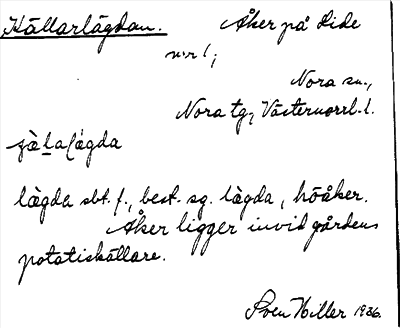 Källarlägdan. Åker på Lide
nr 1;
Nora sn.,
Nora tg, Västernorrl. l.
lägda sbt. f., best. sg. lägda, höåker.
Åker ligger invid gårdens
potatiskällare.
Sven Hiller 1936.